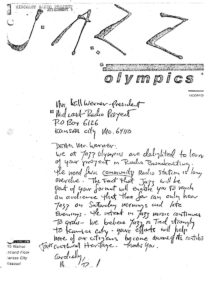 JAZZ
olympics
Mr. Bill Werner - President
Mid coast Radio Project
P.O Box 6126
Kansas City Mo. 64110
Dear Mr. Werner:
We at Jazz Olympics are delighted to learn
of your project in Radio Broadcasting.
The need for a community Radio Station is long
overdue. The fact that Jazz will be
part of your format will enable you to reach
an audience that thus far can only hear
Jazz on Saturday mornings and late
evenings. The interest in Jazz music continues
to grow. We believe Jazz is tied strongly
to Kansas City. Your efforts will help
more of our citizens become
cultural heritage. Thank you.
Cordially,